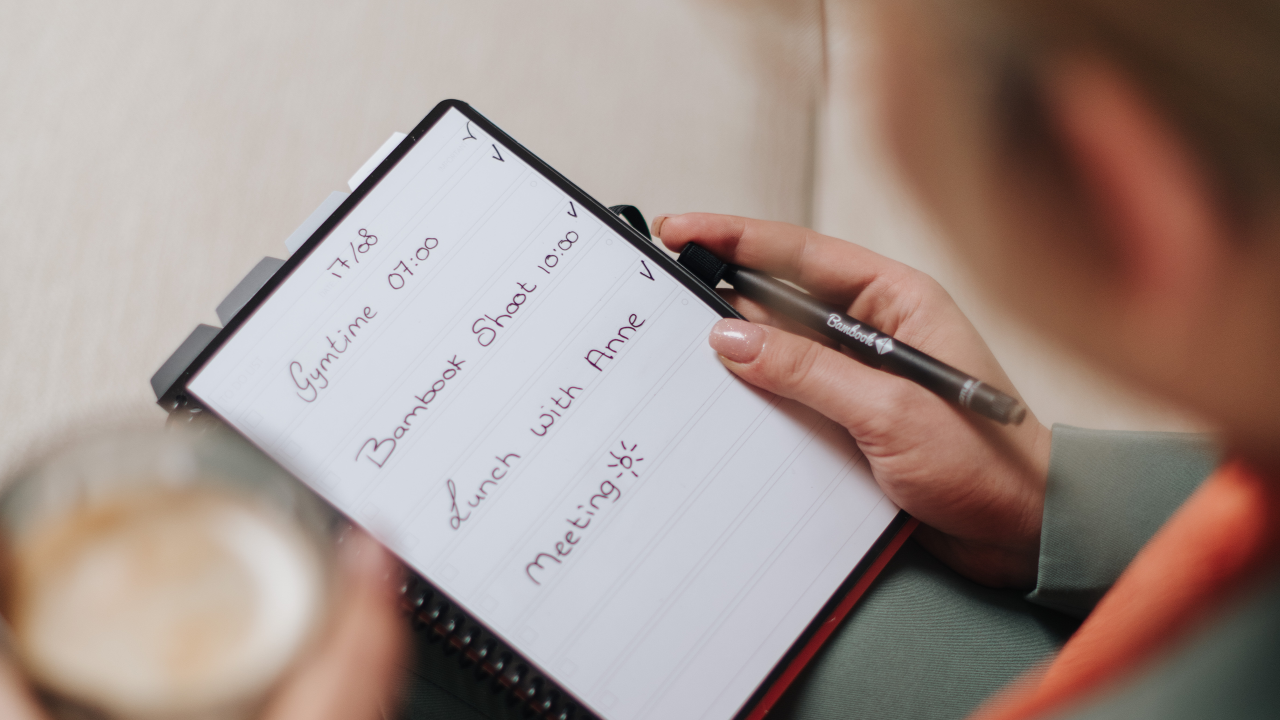 17/08
Gymtime 07:00
Bambook Shoot 10:00
Lunch with Anne
Meeting
Bambook